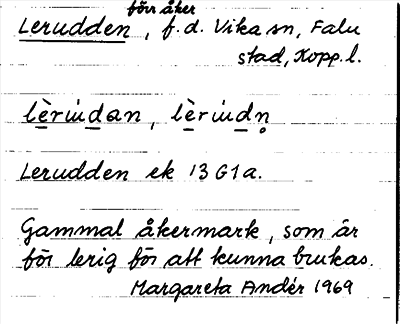 förr åker
Lerudden, f.d. Vika sn, Falu
stad, Kopp.l.
lèrùdan, lèrùdn̥
Lerudden ek 13 G1a.
Gammal åkermark, som är
för lerig för att kunna brukas.
Margareta Andér 1969